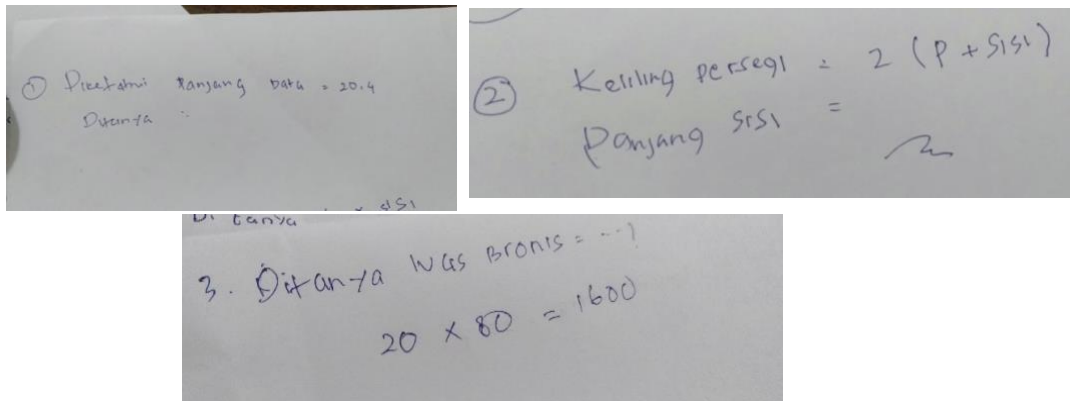 ① Diketahui Panjang bata = 20.4
Ditanya :
sisi
② Keliling persegi = 2 (P + Sisi)
Panjang sisi =
Di tanya
3. Ditanya luas Bronis = ...?
20 x 80 = 1600